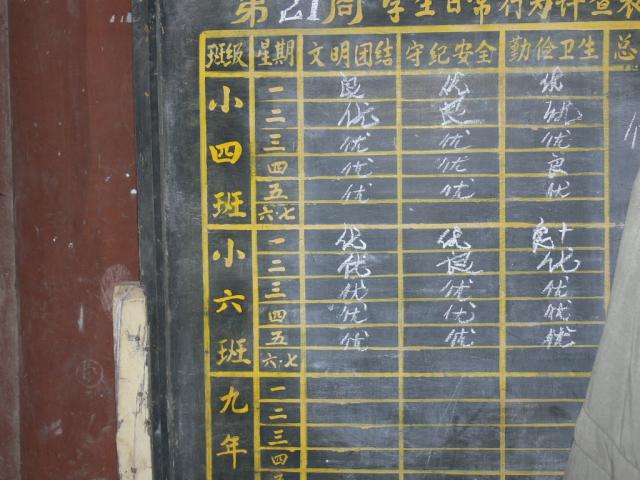 第21周 学生日常行为评查表
班级 星期 文明团结 守纪安全 勤俭卫生 总
小四班
一 良 优 优
二 优 良 优
三 优 优 优
四 优 优 良
五 优 优 优
六·七
小六班
一 优 优 良+
二 优 良 优
三 优 优 优
四 优 优 优
五 优 优 优
六·七
九年
一
二
三
四